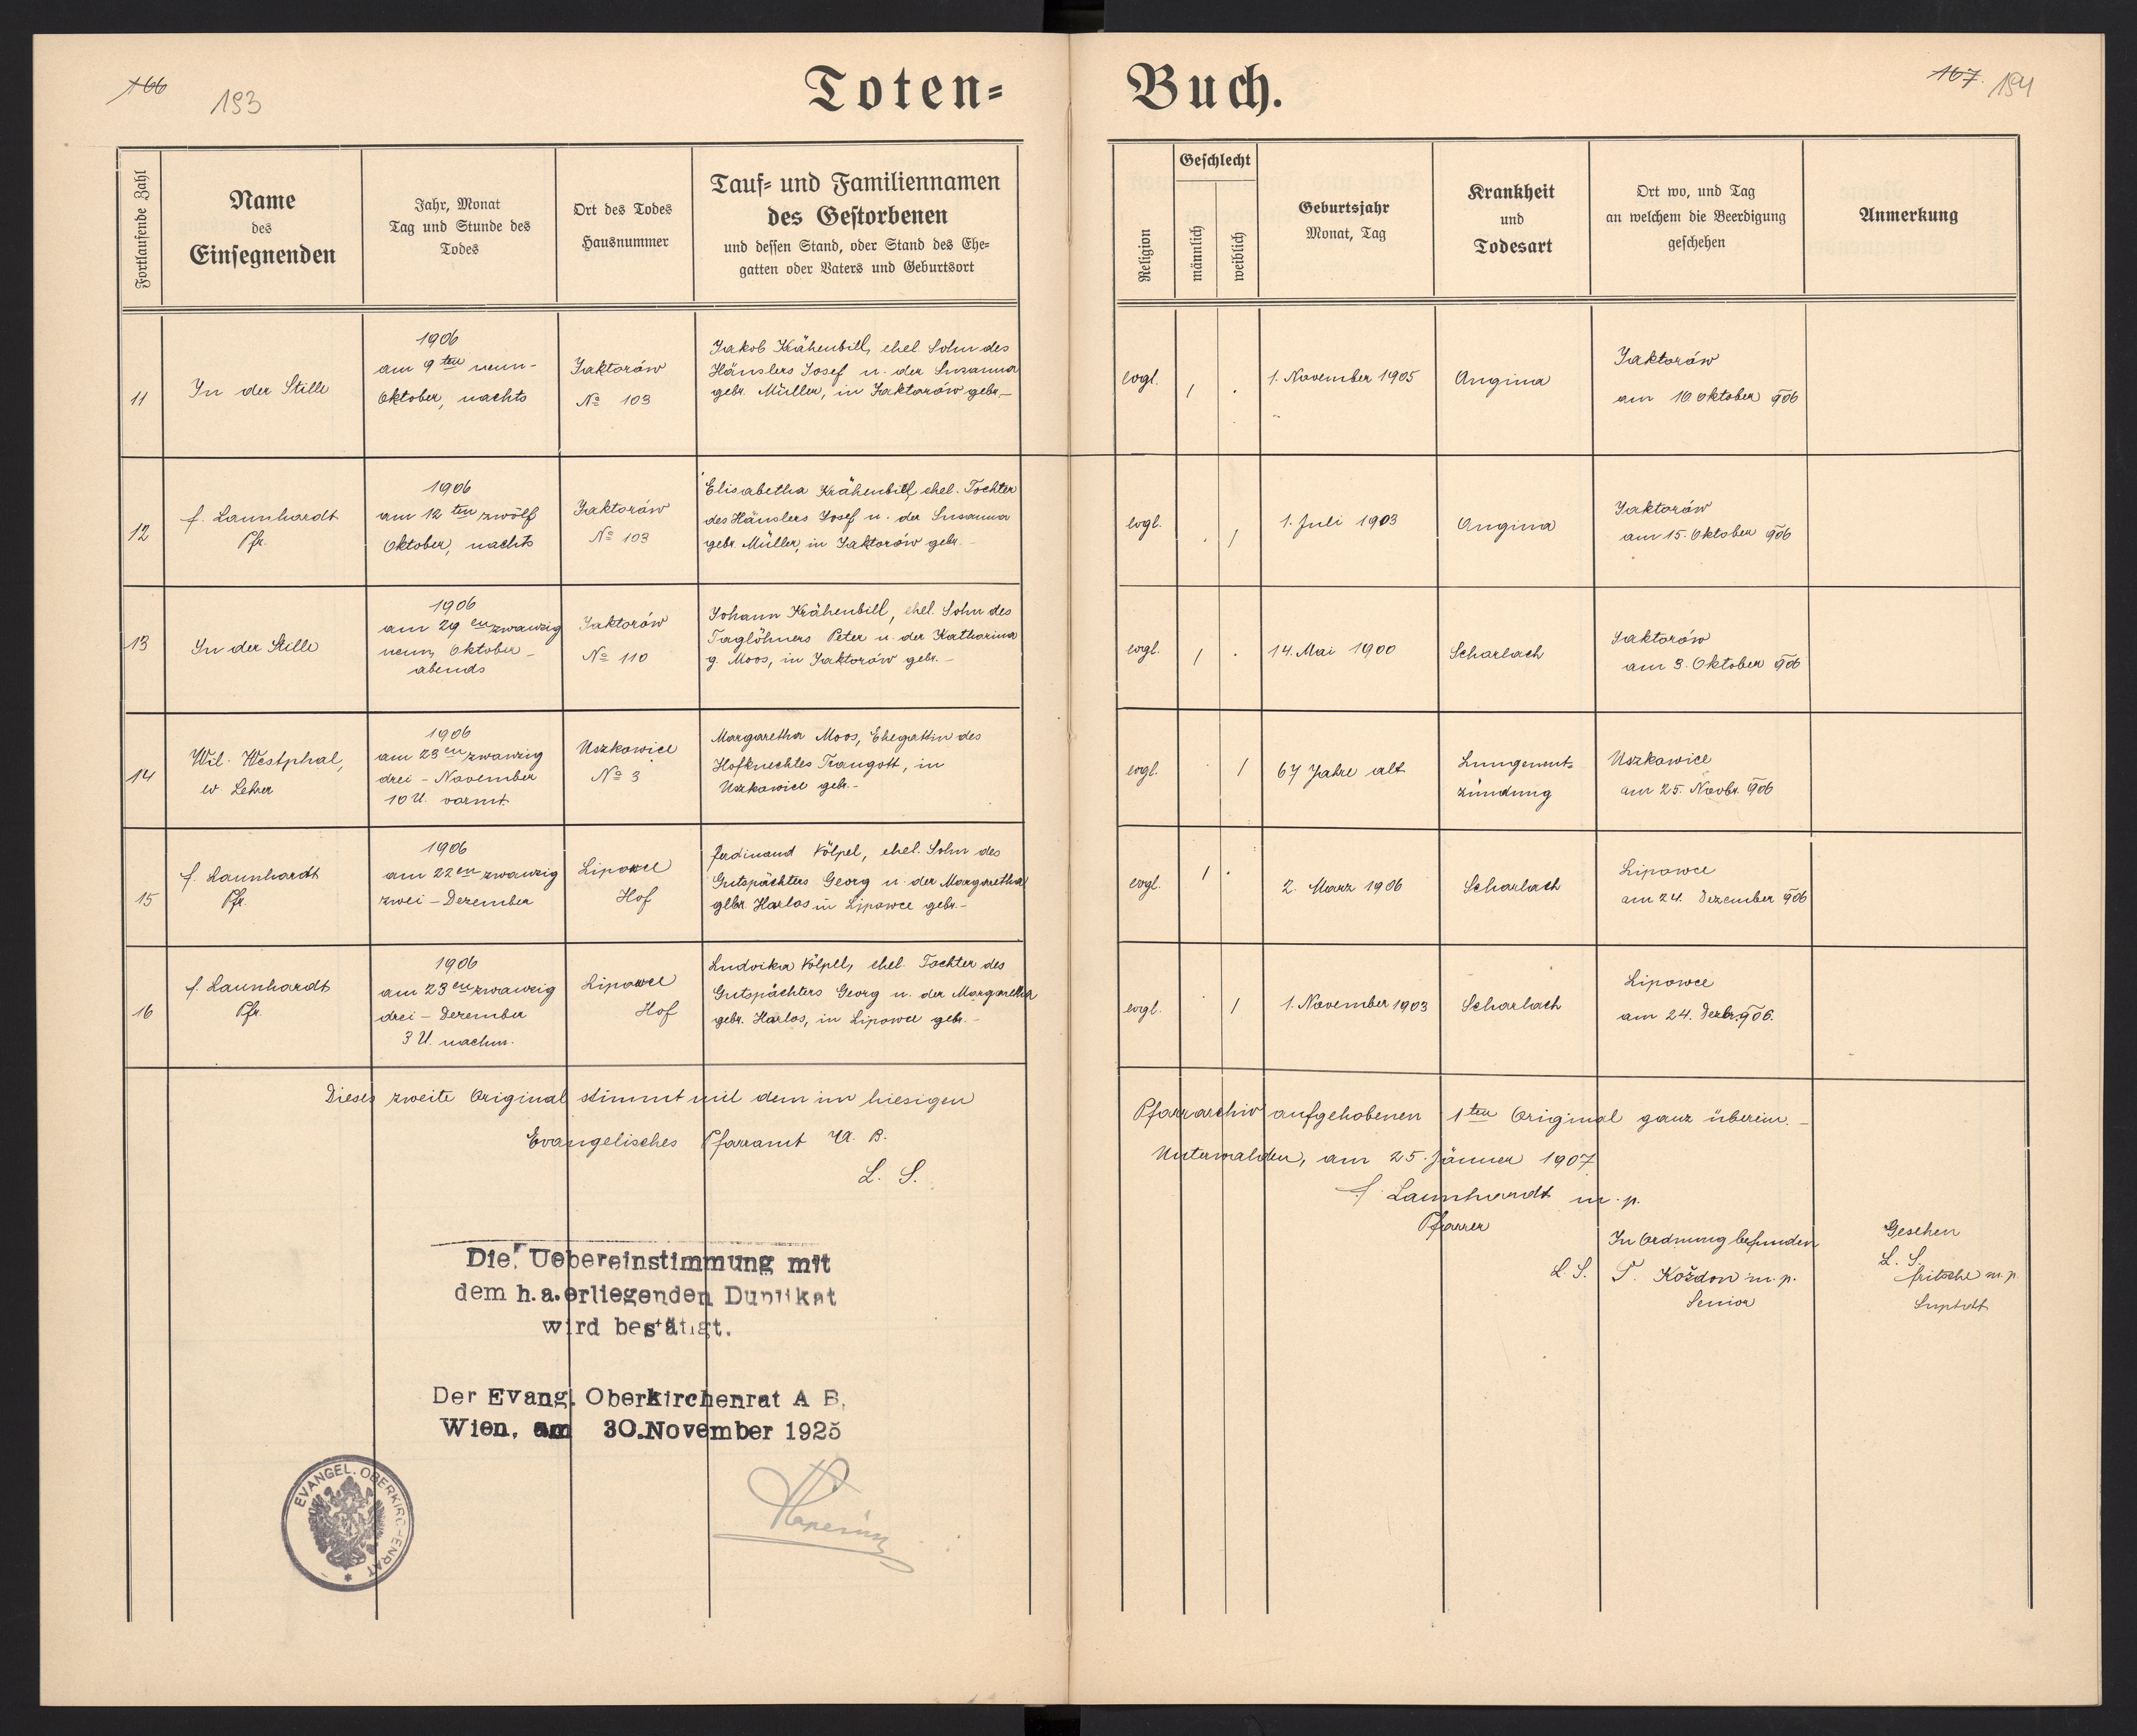 166 193
Toten-
Buch.
167. 194
Fortlaufende Zahl
Name
des
Einsegnenden
Jahr, Monat
Tag und Stunde des
Todes
Ort des Todes
Hausnummer
Tauf- und Familiennamen
des Gestorbenen
und dessen Stand, oder Stand des Ehe-
gatten oder Vaters und Geburtsort
Religion
Geschlecht
männlich
weiblich
Geburtsjahr
Monat, Tag
Krankheit
und
Todesart
Ort wo, und Tag
an welchem die Beerdigung
geschehen
Anmerkung
11
In der Stille
1906
am 9ten neun-
Oktober, nachts
Jaktorów
№ 103
Jakob Krähenbill, ehel. Sohn des
Häuslers Josef u. der Susanna
gebr. Müller, in Jaktorów gebr.-
evgl.
/ .
1. November 1905
Angina
Jaktorów
am 10 Oktober 906
12
f. Launhardt
Pfr.
1906
am 12 ten zwölf
Oktober, nachts
Jaktorów
№ 103
Elisabetha Krähenbill, ehel. Tochter
des Häuslers Josef u. der Susanna
gebr. Müller, in Jaktorów gebr.-
evgl.
. /
1. Juli 1903
Angina
Jaktorów
am 15. Oktober 906
13
In der Stille
1906
am 29 en zwanzig
neun, Oktober -
abends
Jaktorów
№ 110
Johann Krähenbill, ehel. Sohn des
Taglöhners Peter u. der Katharina
g. Moos, in Jaktorów gebr.-
evgl.
/ .
14. Mai 1900
Scharlach
Jaktorów
am 3. Oktober 906
14
Wil. Westphal,
ev Lehrer
1906
am 23 en zwanzig
drei - November
10 U. vormt.
Uszkowice
№ 3
Margaretha Moos, Ehegattin des
Hofknechtes Traugott, in
Uszkowice gebr.-
evgl.
. /
67 Jahre alt
Lungenent-
zündung
Uszkowice
am 25. Novbr. 906
15
f. Launhardt
Pfr.
1906
am 22 en zwanzig
zwei - Dezember
Lipowce
Hof
Ferdinand Kölpel, ehel. Sohn des
Gutspächters Georg u. der Margaretha
gebr. Harlos in Lipowce gebr.-
evgl.
/ .
2. März 1906
Scharlach
Lipowce
am 24. Dezember 906
16
f. Launhardt
Pfr.
1906
am 23 en zwanzig
drei - Dezember
3 U. nachm.
Lipowce
Hof
Ludvika Kölpel, ehel. Tochter des
Gutspächters Georg u. der Margaretha
gebr. Harlos, in Lipowce gebr.-
evgl.
. /
1. November 1903
Scharlach
Lipowce
am 24. Dezbr. 906.
Dieses zweite Original stimmt mit dem im hiesigen
Pfarrarchiv aufgehobenen 1ten Original ganz überein. -
Evangelisches Pfarramt A. B.
Unterwalden, am 25. Jänner 1907
L. S.
f. Launhardt m. p.
Pfarrer
In Ordnung befunden
L. S. T. Koždon m. p.
Senior
Gesehen
L. S.
fritsche m. p.
Suptdt
Die Uebereinstimmung mit
dem h.a.erliegenden Duplikat
wird bestätigt.
Der Evang. Oberkirchenrat A B.
Wien, am 30.November 1925
EVANGEL. OBERKIRCHENRAT